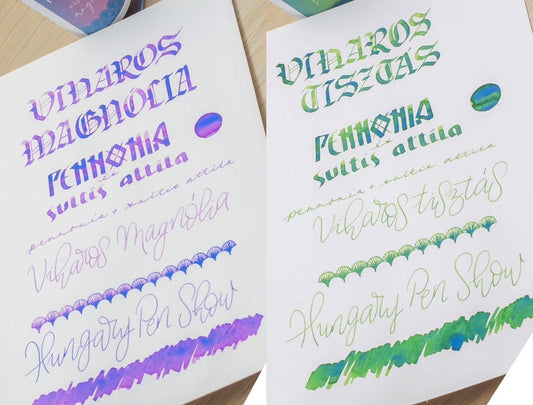 VIHAROS
MAGNÓLIA
PENNONIA
sultis attila
pennonia + sultis attila
Viharos Magnólia
Hungary Pen Show
VIHAROS
TISZTÁS
PENNONIA
sultis attila
pennonia + sultis attila
Viharos tisztás
Hungary Pen Show